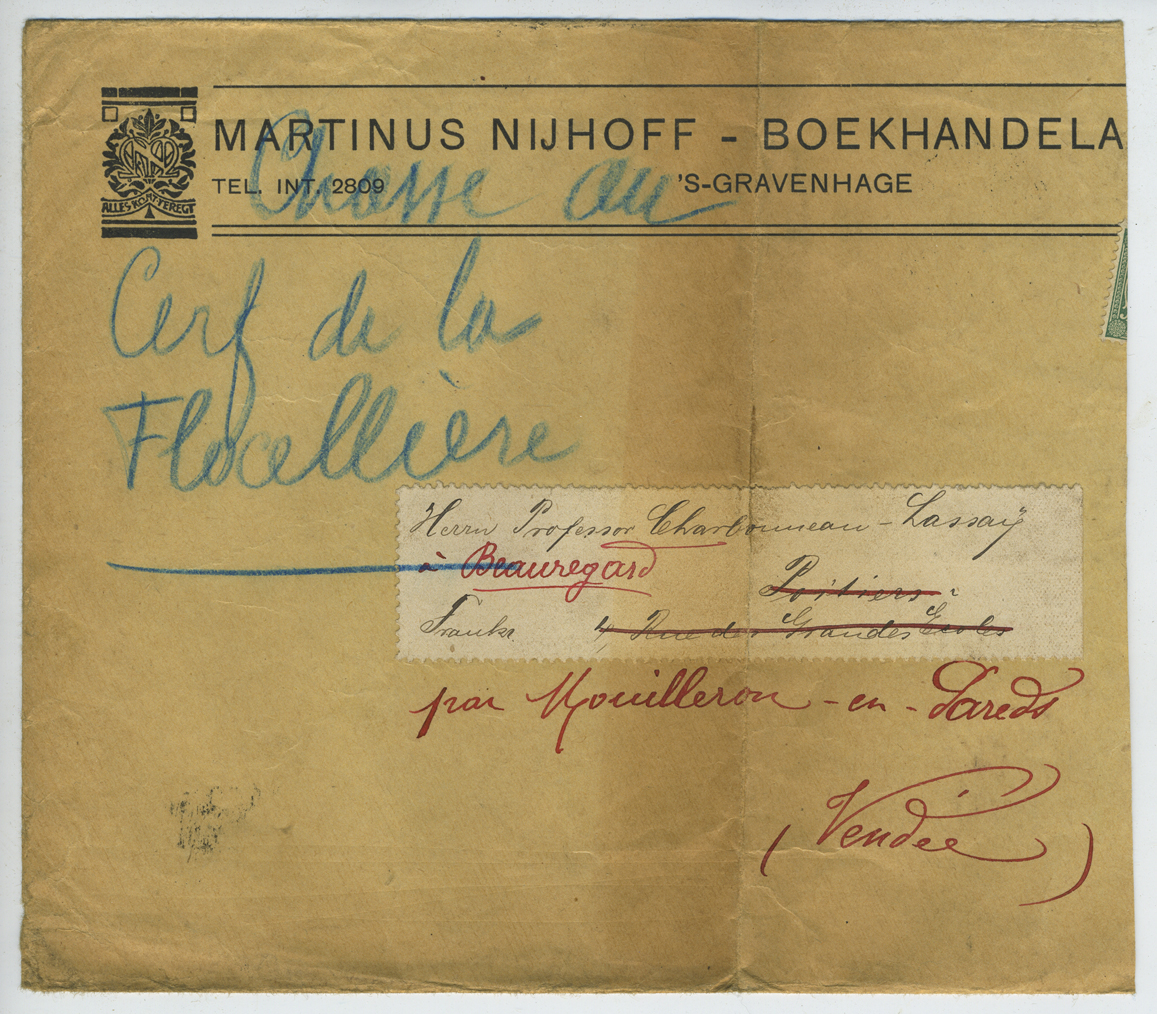 MARTINUS NIJHOFF - BOEKHANDELA
TEL. INT. 2809 'S-GRAVENHAGE
ALLES KOMT TEREGT
Chasse au
Cerf de la
Flocellière
Herrn Professor Charbonneau-Lassaÿ
à Beauregard
Poitiers
Frankr. 4, Rue des Grandes Ecoles
par Mouilleron-en-Pareds
(Vendée)